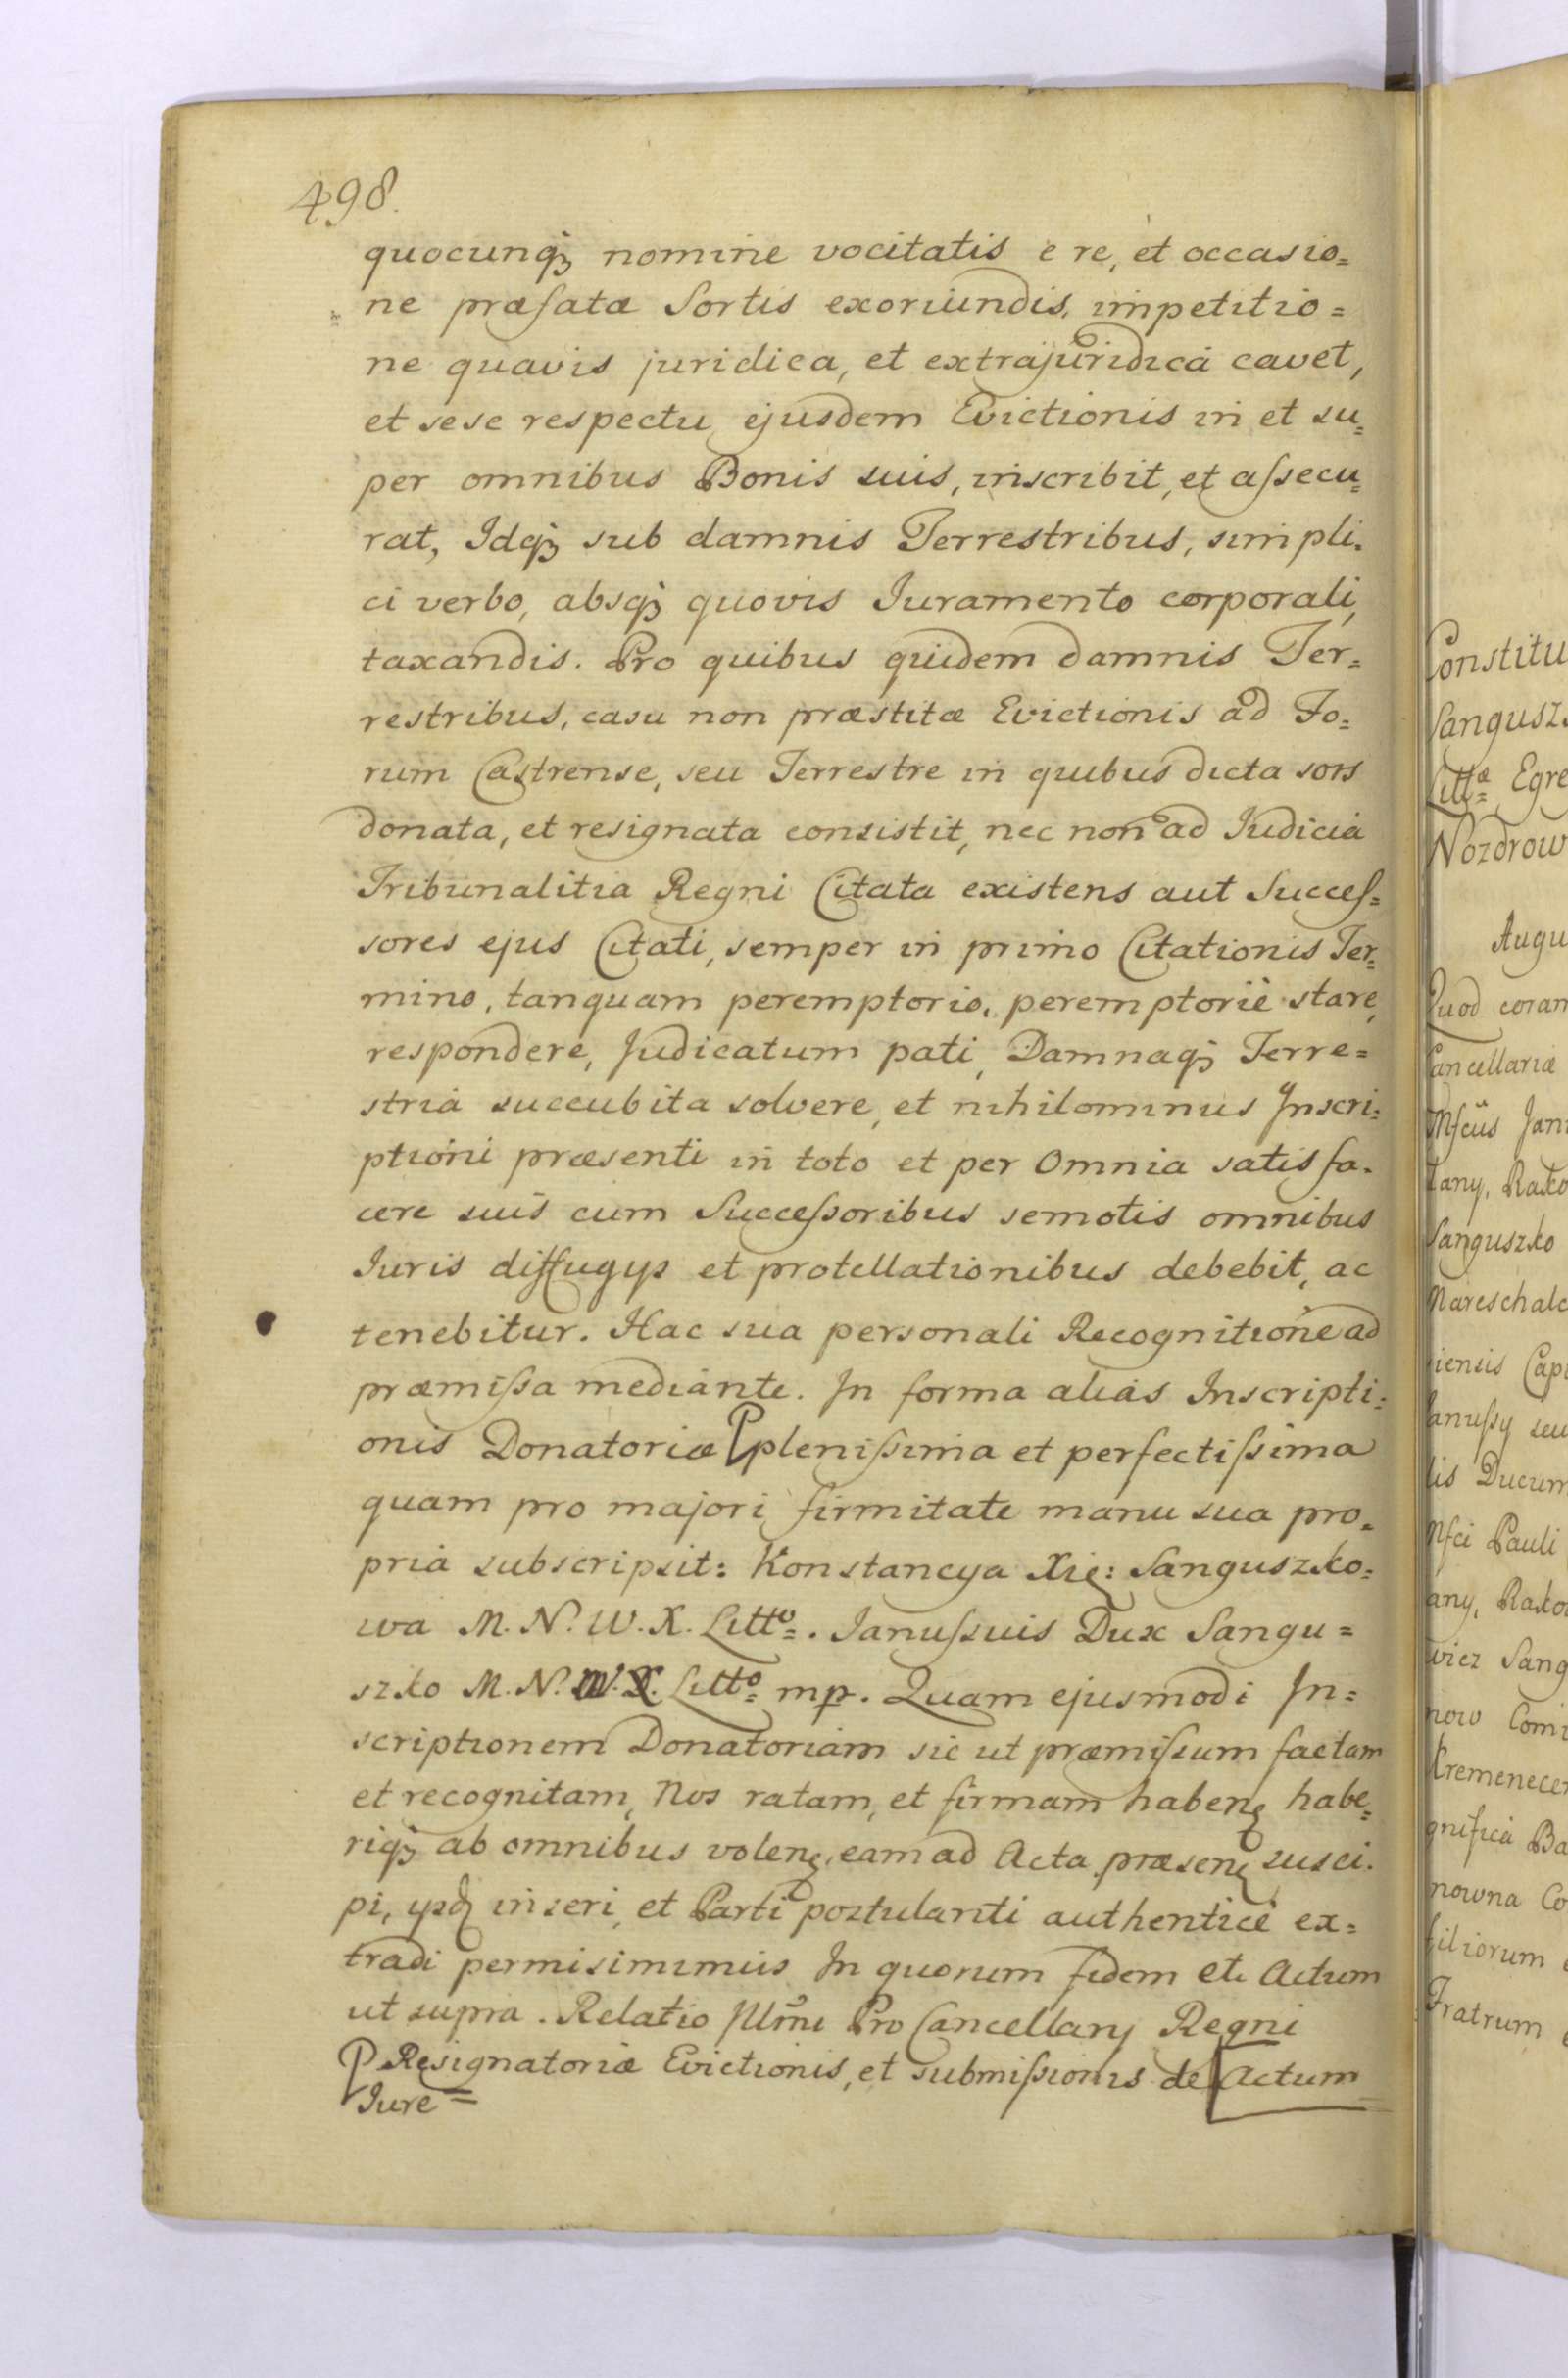 498.
quocunq3 nomine vocitatis e re, et occasio=
ne præfatæ Sortis exoriundis, impetitio=
ne quavis juridica, et extrajuridica cavet,
et sese respectu ejusdem Evictionis in et su=
per omnibus Bonis suis, inscribit, et aſsecu=
rat, Idq3 sub damnis Terrestribus, simpli=
ci verbo, absq3 quovis Iuramento corporali,
taxandis. Pro quibus quidem damnis Ter=
restribus, casu non præstitæ Evictionis ad Fo=
rum Castrense, seu Terrestre in quibus dicta sors
donata, et resignata consistit, nec non ad Iudicia
Tribunalitia Regni Citata existens aut Succeſ=
sores ejus Citati, semper in primo Citationis Ter=
mino, tanquam peremptorio, peremptoriè stare,
respondere, Judicatum pati, Damnaq3 Terre=
stria succubita solvere, et nihilominus Inscri=
ptioni præsenti in toto et per Omnia satisfa=
cere suis cum Succeſsoribus semotis omnibus
Iuris diffugys et protellationibus debebit, ac
tenebitur. Hac sua personali Recognitione ad
præmiſsa mediante. In forma alias Inscripti=
onis Donatoriæ P pleniſsima et perfectiſsima
quam pro majori firmitate manu sua pro=
pria subscripsit: Konstancya Xię: Sanguszko=
wa M. N. W. X. Litto=. Ianuſsuis Dux Sangu=
szko M. N. W. X. Litto= mp. Quam ejusmodi In=
scriptionem Donatoriam sic ut præmiſsum factam
et recognitam, Nos ratam, et firmam habenę habe=
riq3 ab omnibus volenę, eam ad Acta præsenę susci=
pi, ysdę inseri, et Parti postulanti authenticè ex=
tradi permisimimus In quorum fidem etc Actum
ut supra. Relatio Illmi Pro Cancellary Regni
P Resignatoriæ Evictionis, et submiſsionis de Actum
Iure=
Constitu
Sangusz
Littæ= Egre
Nozdrow
Augu
Quod coram
Cancellariæ
Mfcus Jan
tany, Rako
Sanguszko
Mareschalc
iensis Cap
anuſsy seu
lis Ducum
Mfci Pauli
any, Rako
wicz Sang
now Comi
Kremenece
gnifica Ba
nowna Co
filiorum
Fratrum